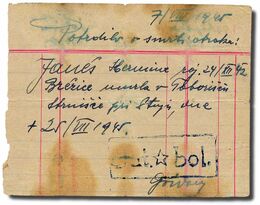 7/VIII 1945
Potrdilo o smrti otroka:
Janeš Hermine roj. 24/XII 42
Brežice umrla v Taborišču
Strnišče pri Ptuj, dne
+ 25/VII 1945
bol.